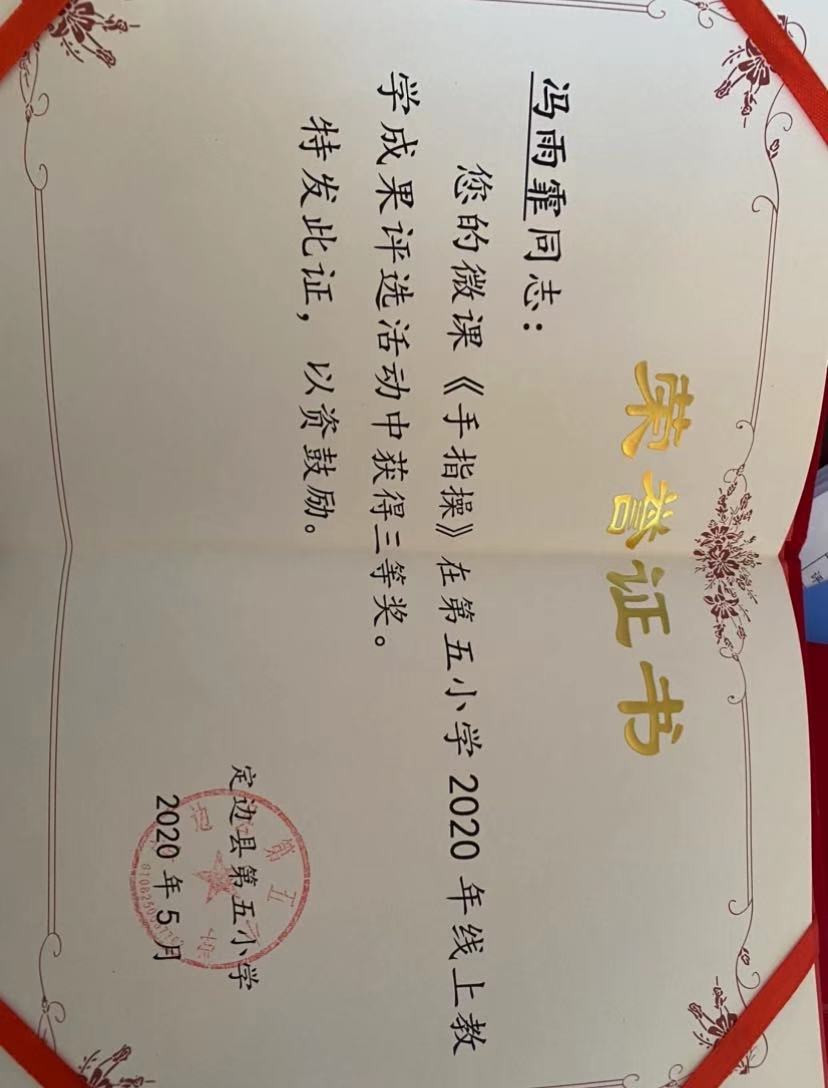 荣誉证书
冯雨霏同志：
您的微课《手指操》在第五小学2020年线上教
学成果评选活动中获得三等奖。
特发此证，以资鼓励。
定边县第五小学
2020年5月